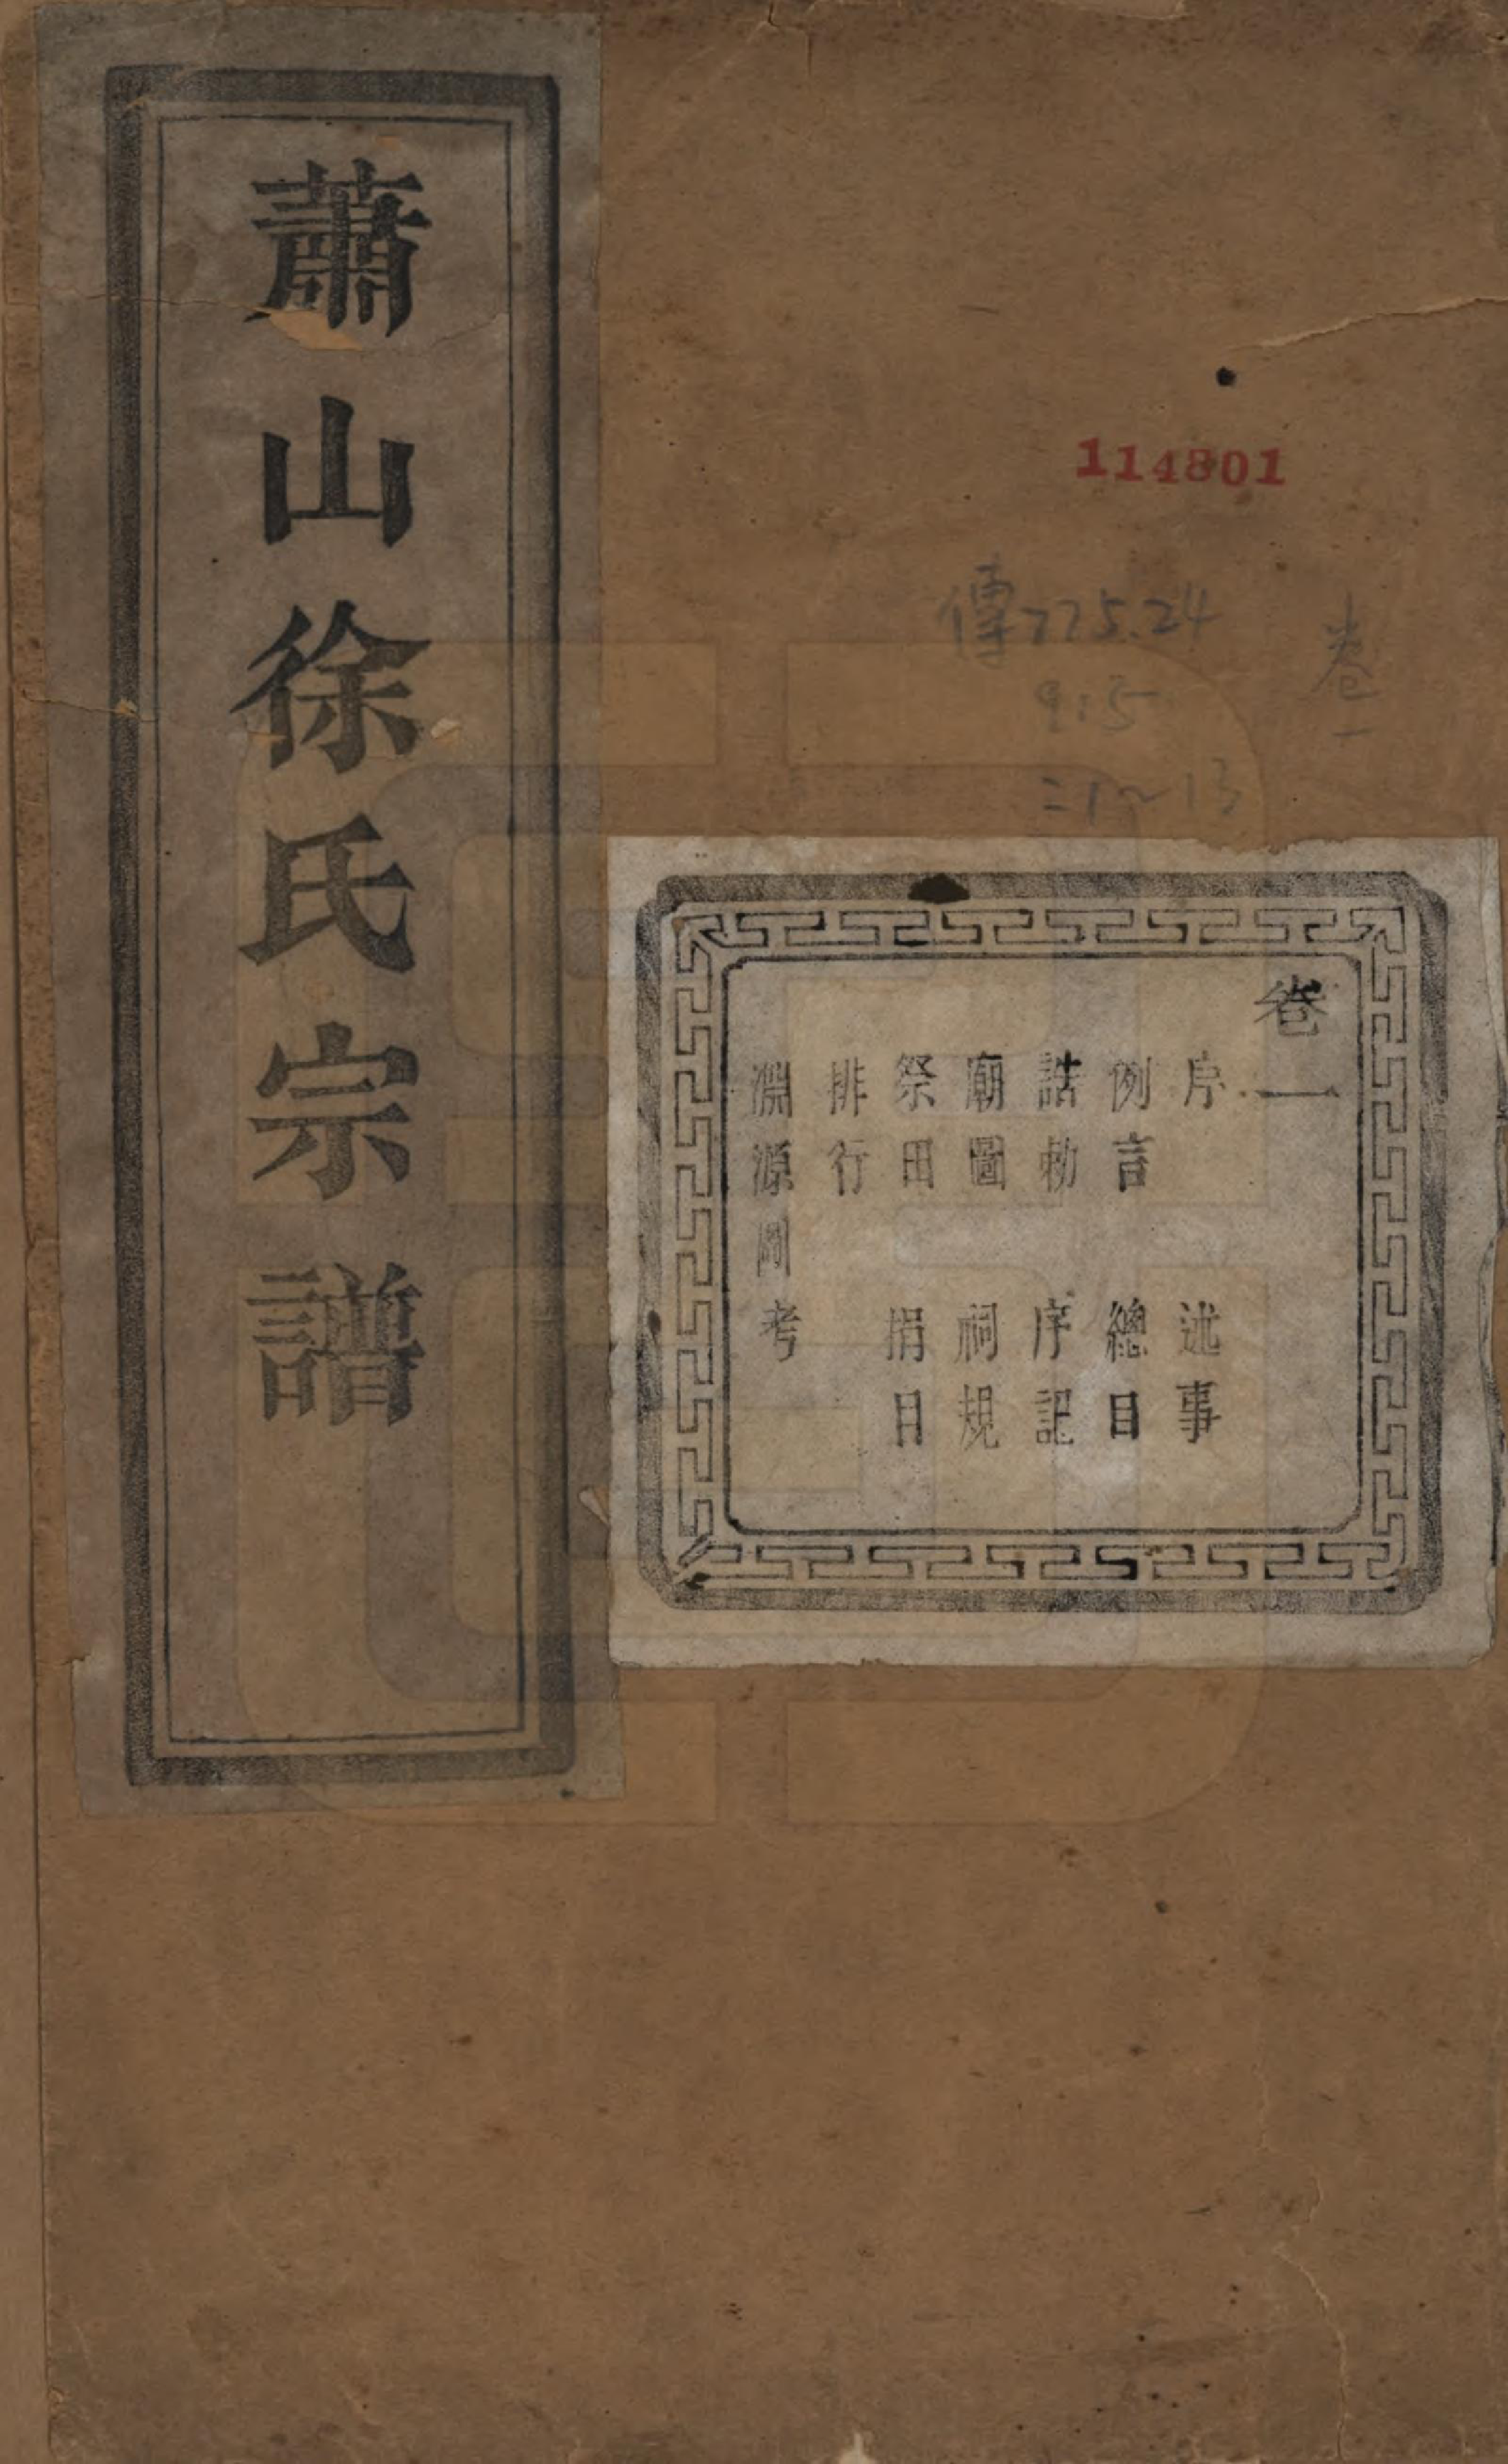 蕭山徐氏宗譜
114801
傳775.24
9:5
=1~13
卷一
卷一
序 述事
例言 總目
誥勅 序記
廟圖 祠規
祭田 捐目
排行
淵源圖考